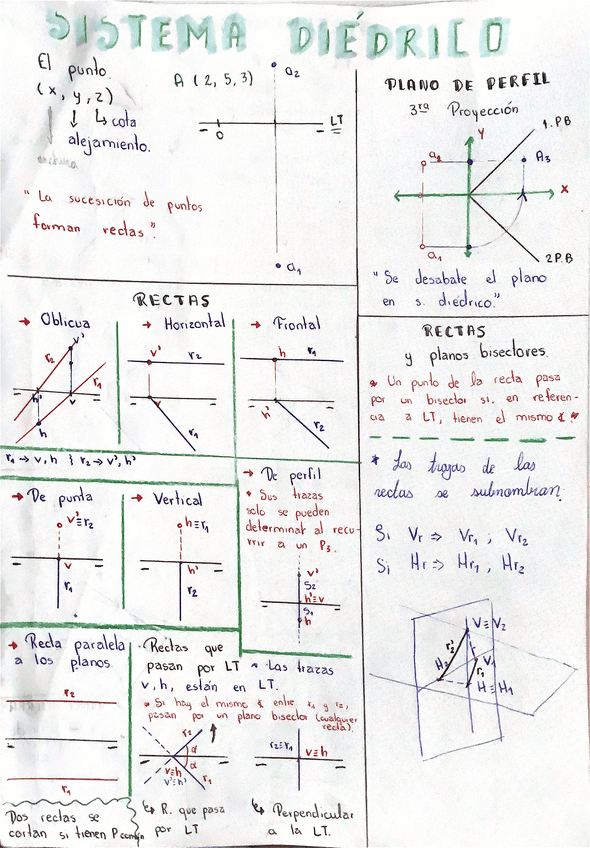 SISTEMA DIÉDRICO
El punto.
(x, y, z)
cota
alejamiento.
A (2, 5, 3)
a2
LT
0
a1
"La sucesición de puntos
forman rectas".
PLANO DE PERFIL
3ra Proyección
Y
1.PB
a2
A3
X
a1
2P.B
"Se desabate el plano
en s. diedrico."
RECTAS
→ Oblicua
v'
r2
r1
h'
v
h
r1 → v, h } r2 → v', h'
→ Horizontal
v'
r2
v
r1
→ Frontal
h
r1
h'
r2
RECTAS
y planos bisectores.
* Un punto de la recta pasa
por un bisector si, en referen-
cia a LT, tienen el mismo ∡.*
* Las trazas de las
rectas se subnombran.
Si Vr ⇒ Vr1, Vr2
Si Hr ⇒ Hr1, Hr2
→ De punta
v'≡r2
v
r1
→ Vertical
h≡r1
h'
r2
→ De perfil
* Sus trazas
solo se pueden
determinar al recu-
rrir a un P3.
v'
S2
h'≡v
S1
h
V≡V2
r2'
r
H2
V1
r1
H≡H1
→ Recta paralela
a los planos.
r2
r1
Dos rectas se
cortan si tienen P común
· Rectas que
pasan por LT * Las trazas
v, h, están en LT.
* Si hay el mismo ∡ entre r1 y r2,
pasan por un plano bisector (cualquier
recta).
r2
α
α
v≡h
v'≡h'
r1
↳ R. que pasa
por LT
r2≡r1
v≡h
↳ Perpendicular
a la LT.